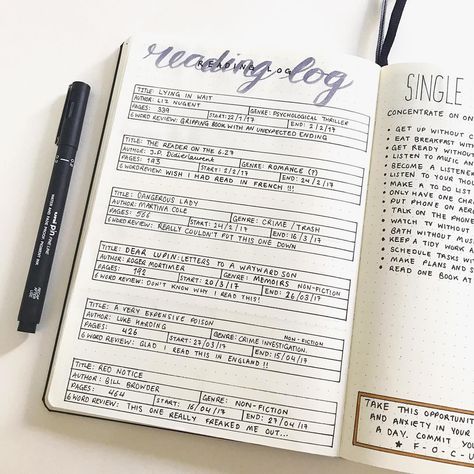 reading log
READING LOG
TITLE: LYING IN WAIT
AUTHOR: LIZ NUGENT GENRE: PSYCHOLOGICAL THRILLER
PAGES: 339 START: 22/1/17 END: 2/2/17
6 WORD REVIEW: GRIPPING BOOK WITH AN UNEXPECTED ENDING
TITLE: THE READER ON THE 6.27
AUTHOR: J.P. Didierlaurent GENRE: ROMANCE (?)
PAGES: 193 START: 2/2/17 END: 24/2/17
6 WORD REVIEW: WISH I HAD READ IN FRENCH !!!
TITLE: DANGEROUS LADY
AUTHOR: MARTINA COLE GENRE: CRIME / TRASH
PAGES: START: 24/2/17 END: 16/3/17
6 WORD REVIEW: REALLY COULDN'T PUT THIS ONE DOWN
TITLE: DEAR LUPIN: LETTERS TO A WAYWARD SON
AUTHOR: ROGER MORTIMER GENRE: MEMOIRS NON-FICTION
PAGES: 192 START: 20/3/17 END: 26/03/17
6 WORD REVIEW: DON'T KNOW WHY I READ THIS!
TITLE: A VERY EXPENSIVE POISON
AUTHOR: LUKE HARDING GENRE: CRIME INVESTIGATION, NON-FICTION
PAGES: 426 START: 27/03/17 END: 15/04/17
6 WORD REVIEW: GLAD I READ THIS IN ENGLAND !!
TITLE: RED NOTICE
AUTHOR: BILL BROWDER GENRE: NON-FICTION
PAGES: 464 START: 16/04/17 END: 27/04/17
6 WORD REVIEW: THIS ONE REALLY FREAKED ME OUT...
SINGLE
CONCENTRATE ON ON
• GET UP WITHOUT C
• EAT BREAKFAST WIT
• GET READY WITHOUT
• LISTEN TO MUSIC AN
• BECOME A LISTENER
• LISTEN TO YOUR THO
• MAKE A TO DO LIST
• ONLY HAVE ONE
• PUT PHONE ON AER
• TALK ON THE PHON
• WATCH TV WITHOUT
• BATH WITHOUT MU
• KEEP A TIDY WORK A
• SCHEDULE TASKS WIT
• MAKE PLANS AND S
• READ ONE BOOK AT
TAKE THIS OPPORTUNIT
AND ANXIETY IN YOUR
A DAY. COMMIT YOU
★ F-O-C
uni PIN FINE LINE